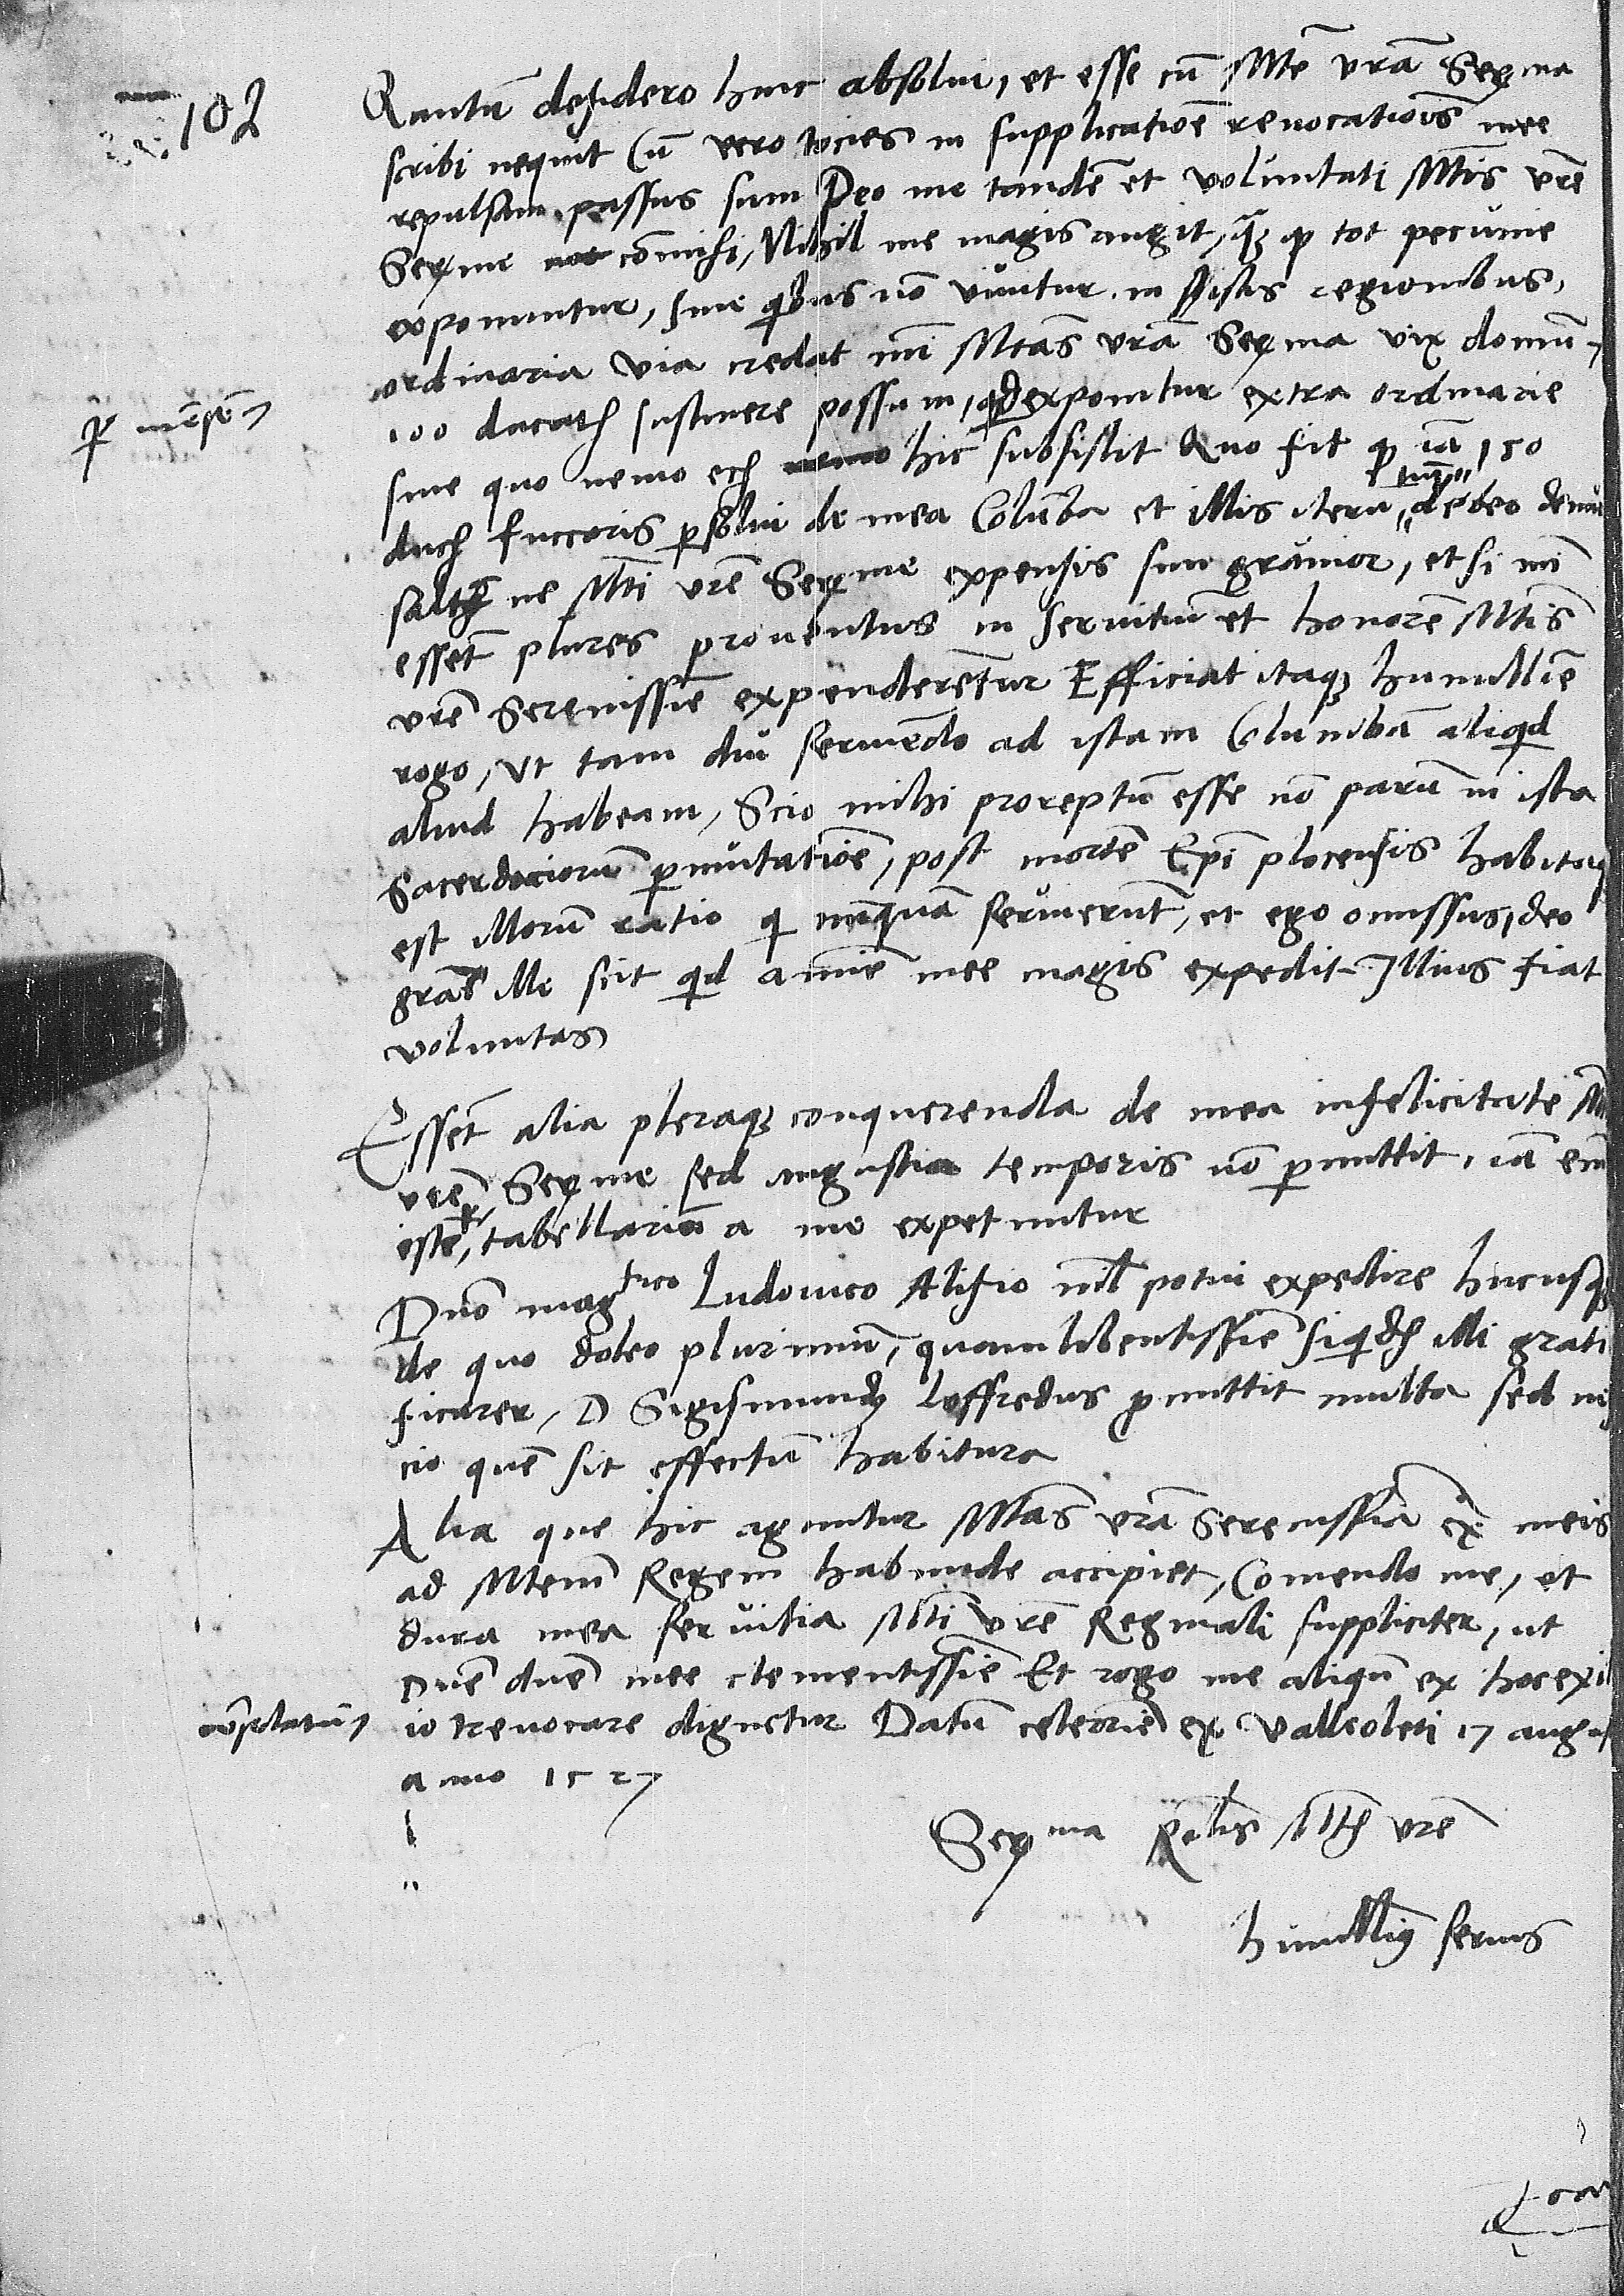 102
Quantu desidero hinc absolui, et esse cu Mte vra Serma
scribi nequit Cu vero tocies in supplicatioe reuocatiois mee
repulsam passus sum Deo me tandē et voluntati Mtis vre
Serme comisi, Nihil me magis angit, q q tot pecunie
exponuntur, sine qbus no viuitur in istis regionibus,
ordinaria via credat mi Mtas vra Serma vix domu,
p mēsē,
100 ducat sustinere possum, qd exponitur extra ordinarie
sine quo nemo hic subsistit Quo fit q ia 150
duc fuccaris psolui de mea Colūba et illis iteru debeo
ne Mti vre Serme expensis sim grauior, et si mi
essēt plures prouentus in seruitiu et honorē Mtis
vre Serenissie expenderētur Efficiat itaq humillie
rogo, vt tam diu seruiēdo ad istam Columbā aliqd
aliud habeam, Scio mihi prereptu esse no paru in ista
Sacerdociorum pmutatioē, post mortē Epi plocensis habita
est illorū ratio q nunquā seruierūt, et ego omissus, deo
gras ille scit qd anime mee magis expedit Illius fiat
voluntas
Essēt alia pleraq conquerenda de mea infelicitate
vre Serme sed angustia temporis no pmittit, iā em
iste, tabellariū a me expetuntur
Dno magfico Ludouico Alifio nil potui expedire hucusq
de quo doleo plurimū, quam libentissie siqd illi grati
ficarer, D Sigismund Loffredus pmittit multa sed nes
cio quē sit effectū habitura
Alia que hic aguntur Mtas vra Serenissia ex meis
ad Mtem Regem habunde accipiet, Comendo me, et
dura mea seruitia Mti vre Reginali suppliciter, ut
Dne dne mee clementissie Et rogo me aliqn ex hoc exil
io reuocare dignetur Datū celerrie ex Valleoleti 17 augus
anno 1527
Serma Relis Mt vre
humilli seruus